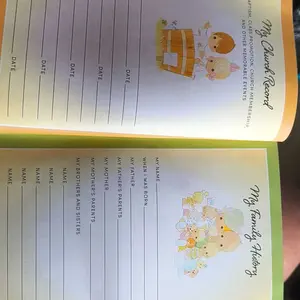 My Church Record
BAPTISM, CLASS PROMOTION, CHURCH MEMBERSHIP,
AND OTHER MEMORABLE EVENTS
DATE
DATE
DATE
DATE
DATE
My Family History
MY NAME
WHEN I WAS BORN
MY FATHER
MY MOTHER
MY FATHER'S PARENTS
MY MOTHER'S PARENTS
MY BROTHERS AND SISTERS:
NAME
NAME
NAME
NAME